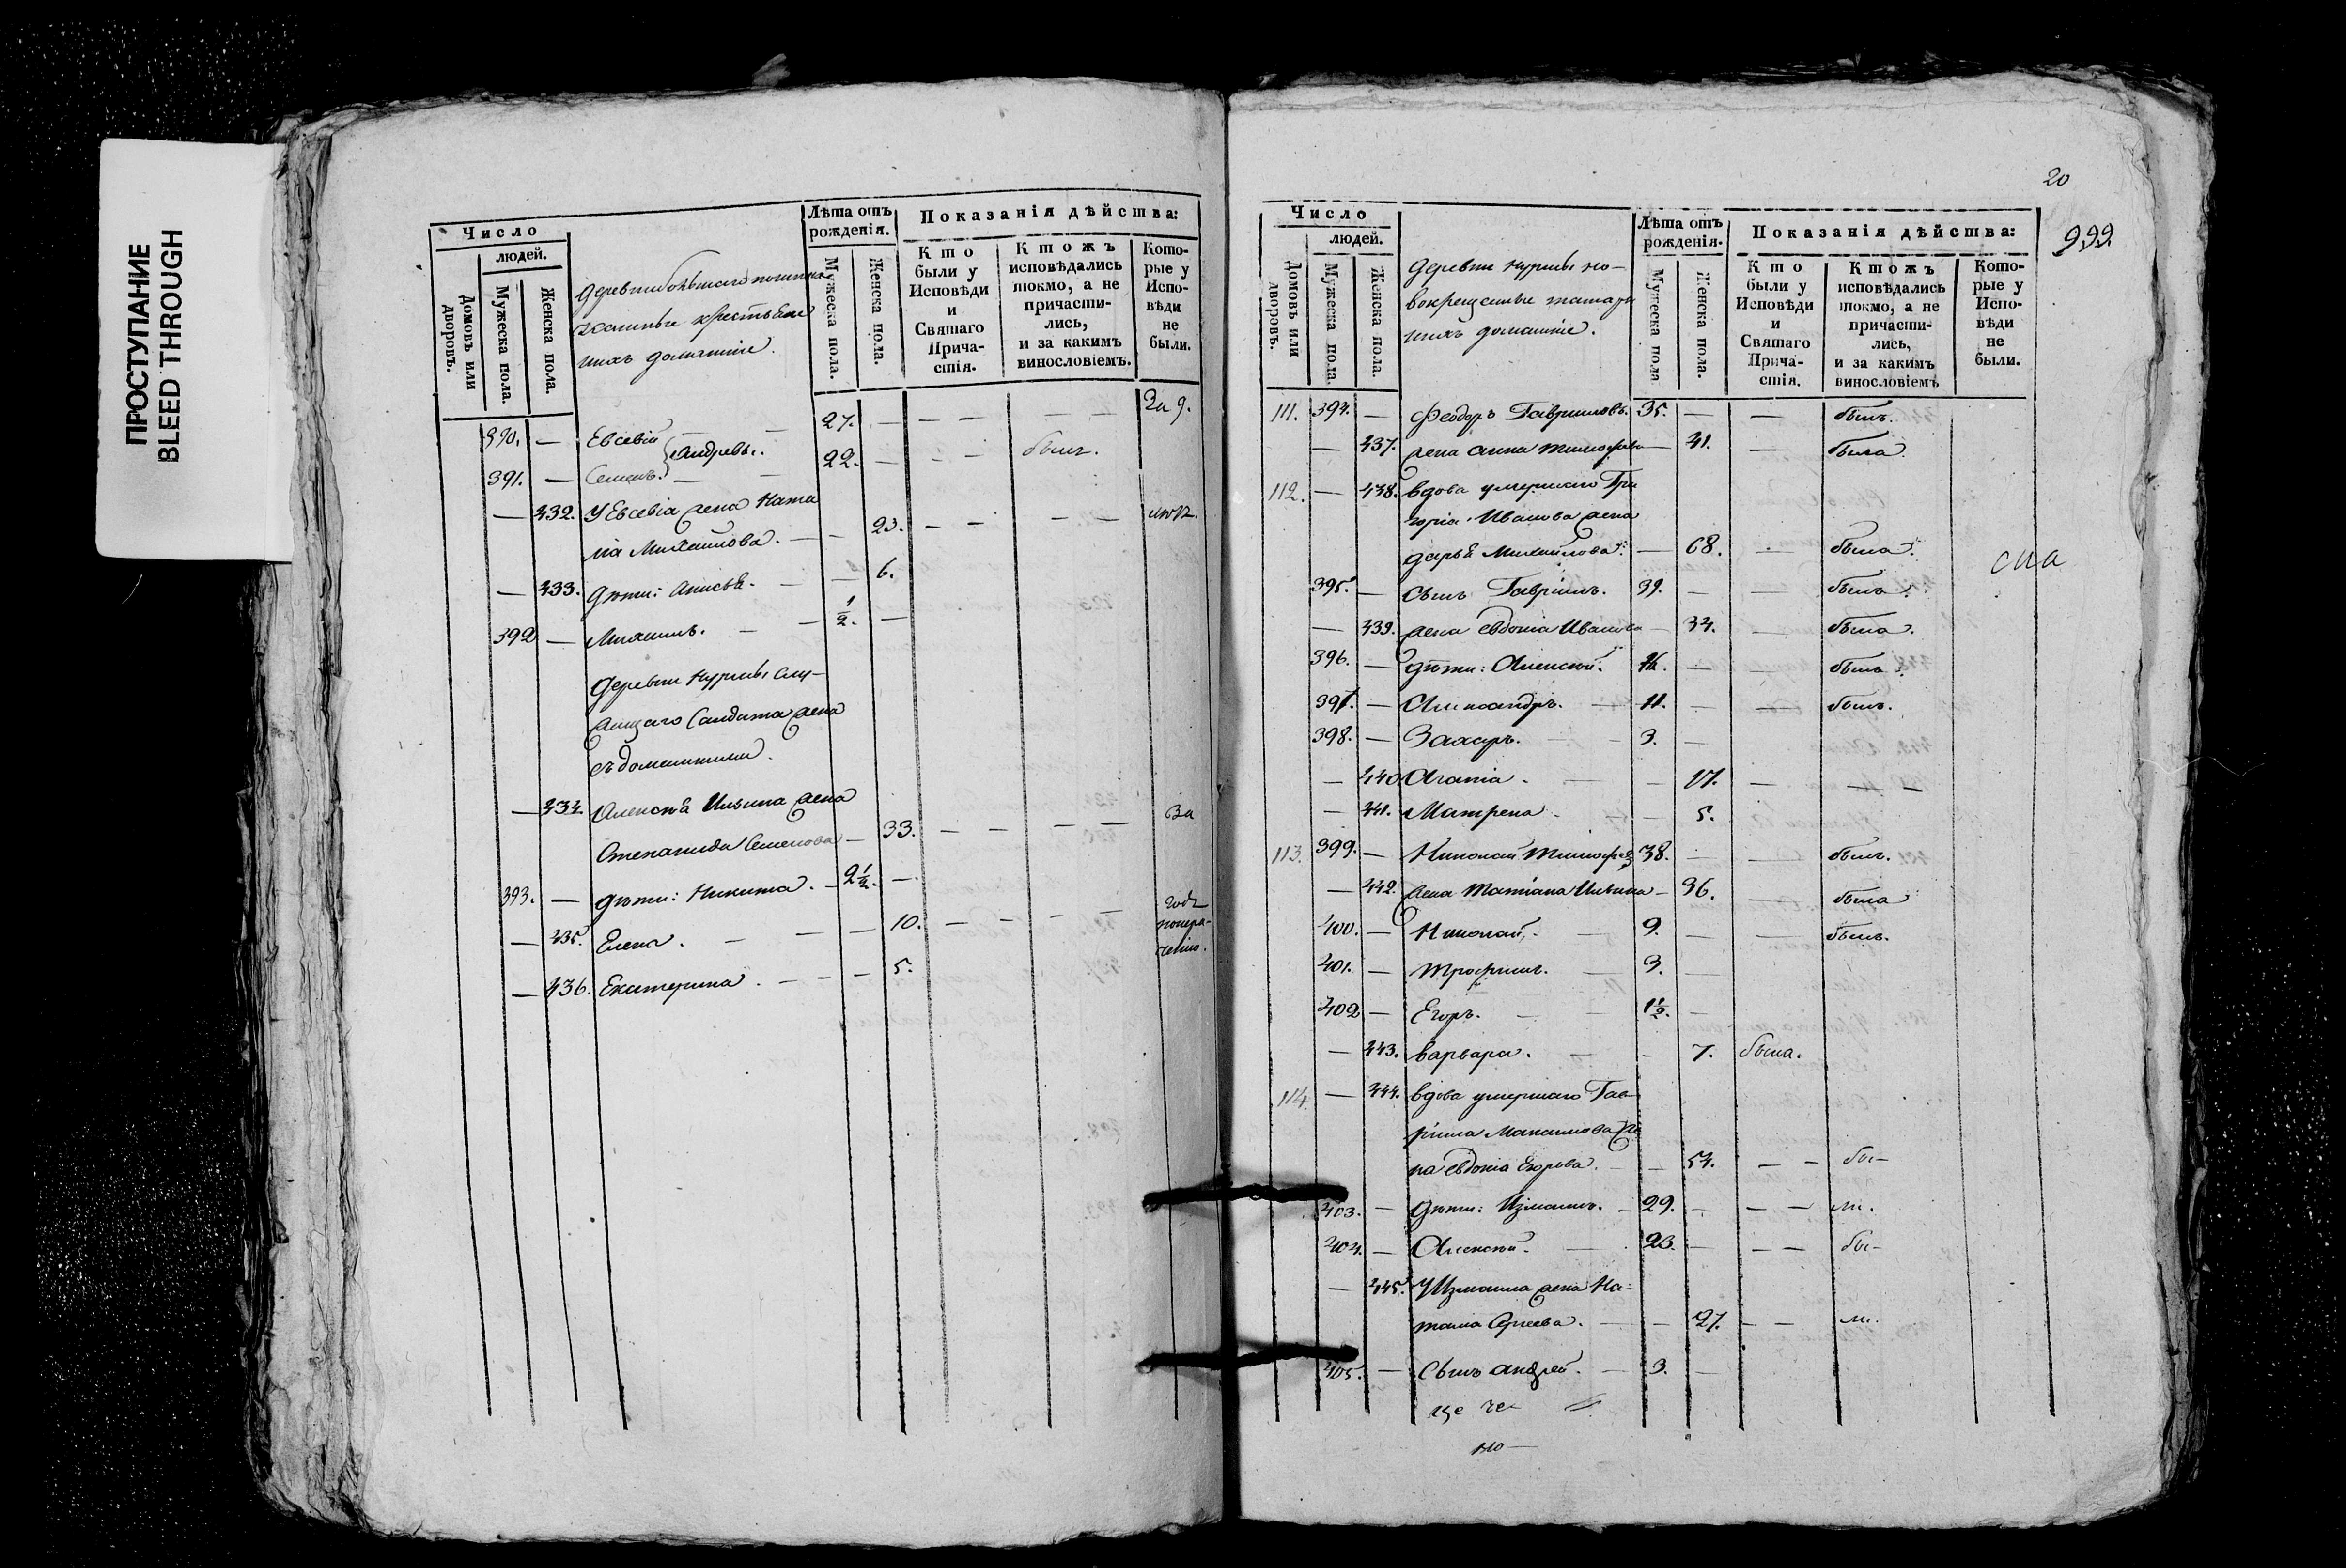 ПРОСТУПАНИЕ
BLEED THROUGH
Число
людей.
Домовъ или дворовъ.
Мужеска пола.
Женска пола.
деревни
крестьяне
ихъ домашніе.
Лѣта отъ рожденія.
Мужеска пола.
Женска пола.
Показанія дѣйства:
Кто были у Исповѣди и Святаго Причастія.
Ктожъ исповѣдались токмо, а не причастились, и за какимъ винословіемъ.
Которые у Исповѣди не были.
390. — Евсевій 27. — — — — —
391. — Семенъ. Андреевы. 22. — — — былъ.
— 432. У Евсевіа жена Ната
ліа Михайлова. — — 23. — — — —
— 433. дѣти: Анисья. — — 6.
392 — Михаилъ. — — 1/2. —
деревни Курмы слу-
жащаго Салдата жена
съ домашними.
— 434. Алексѣя Ильина жена
Степанида Семенова — 33. — — — — За
393. — дѣти: Никита. — 2 1/2. —
— 435. Елена. — — — 10. — — — —
— 436. Екатерина. — — — 5.
20
999
Число
людей.
Домовъ или дворовъ.
Мужеска пола.
Женска пола.
деревни Курмы но-
вокрещеные татары
ихъ домашніе.
Лѣта отъ рожденія.
Мужеска пола
Женска пола.
Показанія дѣйства:
Кто были у Исповѣди и Святаго Причастія.
Ктожъ исповѣдались токмо, а не причастились, и за какимъ винословіемъ
Которые у Исповѣди не были.
111. 394. — Феодоръ Гавриловъ. 35. — — былъ.
— 437. жена Анна Тимофеева — 41. — была.
112. — 438. вдова умершаго Гри
горіа Иванова жена
дарья Михайлова. — 68. — была.
395. — сынъ Гавріилъ. 39. — — былъ.
— 439. жена Евдокіа Иванова — 34. — была.
396. — дѣти: Алексѣй. — — былъ.
397. — Александръ. — 11. — — былъ.
398. — Захаръ. — — 3. —
— 440. Агапіа. — — 17. — — —
— 441. Матрена. — — 5.
113. 399. — Николай Тимофеев 38. — — былъ.
— 442. жена Татіана Ильина — 36. — была
400. — Николай. — 9. — — былъ.
401. — Трофимъ. — 3. —
402 — Егоръ. — — 1 1/2. —
— 443. варвара. — — 7. была.
114. — 444. вдова умершаго Гав-
ріила Максимова же
на Евдокіа Егорова. — — 54. — — бы-
403. — дѣти: Измаилъ. — 29. — — — ли.
404. — Алексѣй. — 23. — — — бы-
— 445. У Измаила жена На-
талія Сергеева. — — 27. — — ли.
405. — Сынъ андрей. — 3. —